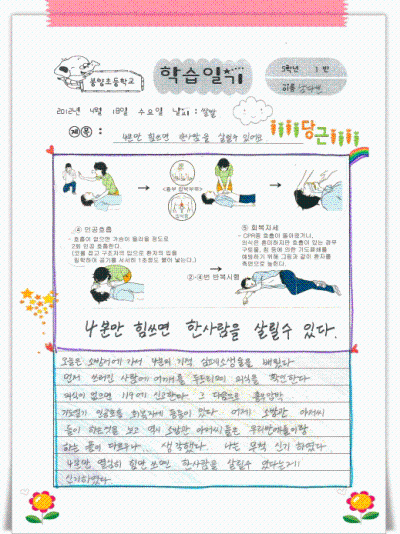 봉양초등학교
학습일기
5학년 1반
이름
2012년 4월 18일 수요일 날씨: 쌀쌀
제목: 4분만 힘쓰면 한사람을 살릴수 있어요
당근
<흉부 압박부위>
④ 인공호흡
- 호흡이 없으면 가슴이 올라올 정도로
2회 인공 호흡한다.
(코를 잡고 구조자의 입으로 환자의 입을
밀착하여 공기를 서서히 1초정도 불어 넣는다.)
⑤ 회복자세
- CPR중 호흡이 돌아오거나,
의식은 혼미하지만 호흡이 있는 경우
구토물, 침 등에 의한 기도폐쇄를
예방하기 위해 그림과 같이 환자를
측면으로 눕힌다.
②-④번 반복시행
4분만 힘쓰면 한사람을 살릴수 있다.
오늘은 소방서에 가서 4분의 기적 심폐소생술을 배웠다.
먼저 쓰러진 사람에 어깨를 두드리며 의식을 확인한다.
의식이 없으면 119에 신고한다. 그 다음으로 흉부압박
기도열기 인공호흡 회복자세 등등이 있다. 어제 소방관 아저씨
들이 하는것을 보고 역시 소방관 아저씨들은 우리반애들이랑
하는 폼이 다르구나. 생각했다. 나는 무척 신기하였다.
4분만 열심히 힘만 쓰면 한사람을 살릴수 있다는것이
신기하였다.